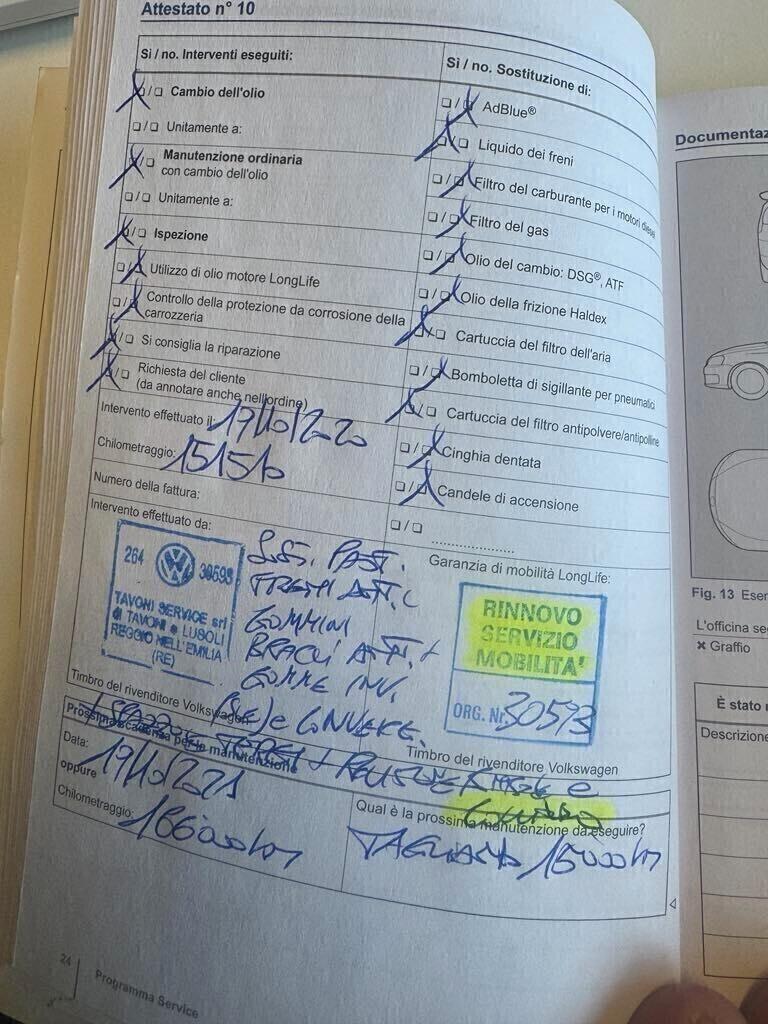 Attestato n° 10
Sì / no. Interventi eseguiti:
Cambio dell'olio
Unitamente a:
Manutenzione ordinaria
con cambio dell'olio
Unitamente a:
Ispezione
Utilizzo di olio motore LongLife
Controllo della protezione da corrosione della
carrozzeria
Si consiglia la riparazione
Richiesta del cliente
(da annotare anche nell'ordine)
Intervento effettuato il: 19/10/2020
Chilometraggio:
Numero della fattura:
Intervento effettuato da:
264 30593
TAVONI SERVICE srl
di TAVONI e LUSOLI
REGGIO NELL'EMILIA
(RE)
PAST.
FRENI ANT.
GOMMINI
BRACCI ANT. +
GOMME INV.
Timbro del rivenditore Volkswagen
Sì / no. Sostituzione di:
AdBlue®
Liquido dei freni
Filtro del carburante per i motori diesel
Filtro del gas
Olio del cambio: DSG®, ATF
Olio della frizione Haldex
Cartuccia del filtro dell'aria
Bomboletta di sigillante per pneumatici
Cartuccia del filtro antipolvere/antipolline
Cinghia dentata
Candele di accensione
Garanzia di mobilità LongLife:
RINNOVO
SERVIZIO
MOBILITA'
ORG. Nr. 30593
Timbro del rivenditore Volkswagen
Prossima scadenza per la manutenzione
Data: 19/10/2021
oppure
Chilometraggio: 166000 km
Qual è la prossima manutenzione da eseguire?
TAGLIANDO 15000 km
24
Programma Service
Documentaz
Fig. 13 Esen
L'officina se
× Graffio
È stato r
Descrizione